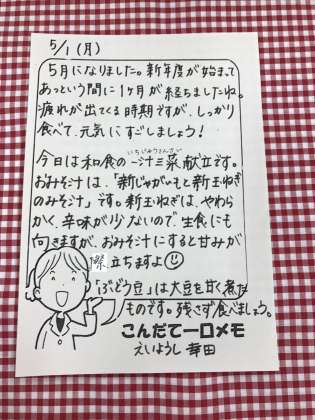 5/1 (月)
5月になりました。新年度が始まって
あっという間に1ヶ月が経ちましたね。
疲れが出てくる時期ですが、しっかり
食べて、元気にすごしましょう!
いちじゅうさんさい
今日は和食の一汁三菜献立です。
おみそ汁は、「新じゃがいもと新玉ねぎ
のみそ汁」です。新玉ねぎは、やわら
かく、辛味が少ないので、生食にも
向きますが、おみそ汁にすると甘みが
際立ちますよ
「ぶどう豆」は大豆を甘く煮た
ものです。残さず食べましょう。
こんだて一口メモ
えいようし 幸田